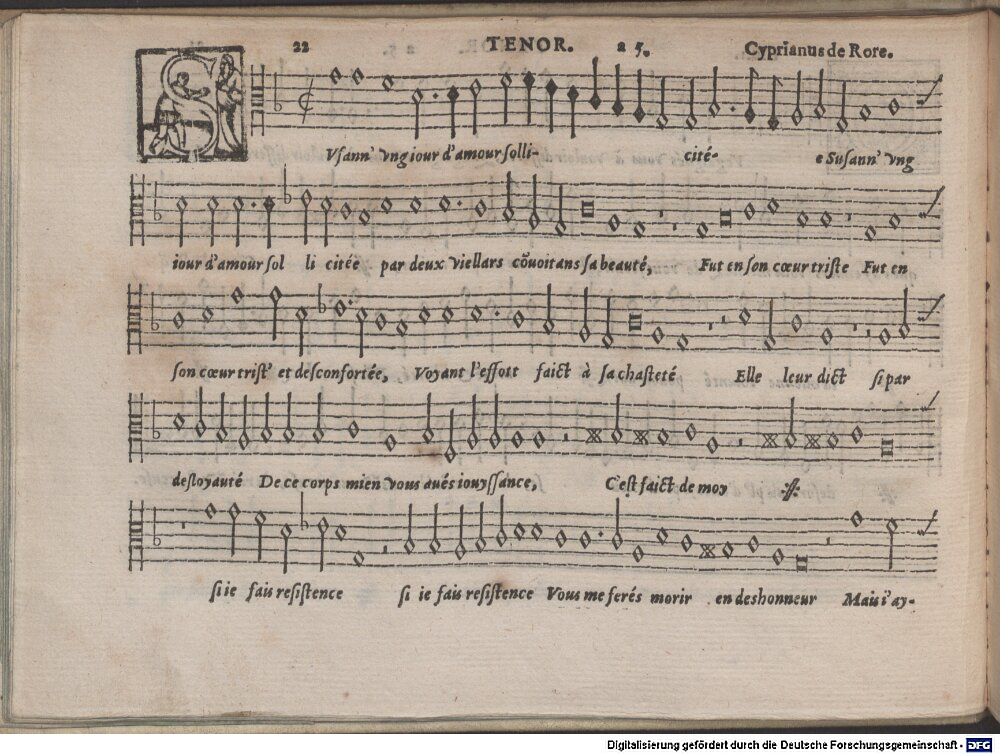 22 TENOR. a 5. Cyprianus de Rore.
SVſann' vng iour d'amour ſolli- cité- e Suſann' vng
iour d'amour ſol li citée par deux viellars cõuoitans ſa beauté, Fut en ſon cœur triſte Fut en
ſon cœur triſt' et deſconfortée, Voyant l'effort faict à ſa chaſteté Elle leur dict ſi par
desloyauté De ce corps mien vous aués iouyſſance, C'eſt faict de moy
ſi ie fais reſiſtence ſi ie fais reſiſtence Vous me ferés morir en deshonneur Mais i'ay-
Digitalisierung gefördert durch die Deutsche Forschungsgemeinschaft - DFG